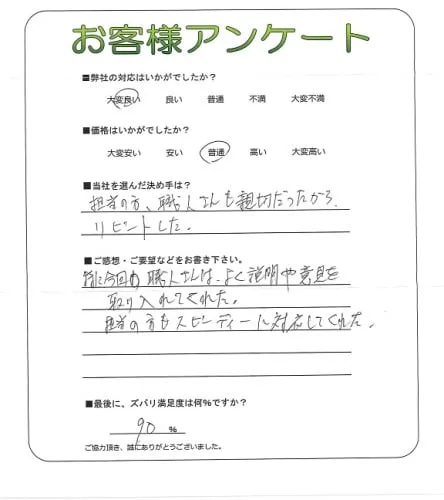 お客様アンケート
■弊社の対応はいかがでしたか？
大変良い 良い 普通 不満 大変不満
■価格はいかがでしたか？
大変安い 安い 普通 高い 大変高い
■当社を選んだ決め手は？
担当の方、職人さんも親切だったから、
リピートした。
■ご感想・ご要望などをお書き下さい。
特に今回の職人さんは、よく説明や意見を
取り入れてくれた。
担当の方もスピーディーに対応してくれた。
■最後に、ズバリ満足度は何％ですか？
90 ％
ご協力頂き、誠にありがとうございました。